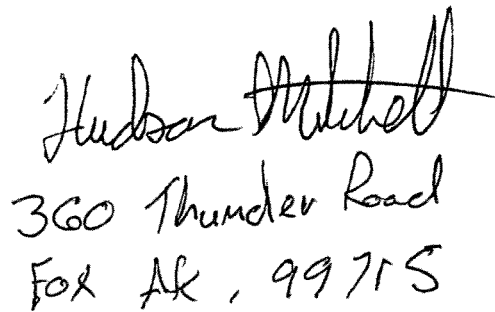 Hudson Mitchell
360 Thunder Road
Fox AK, 99715